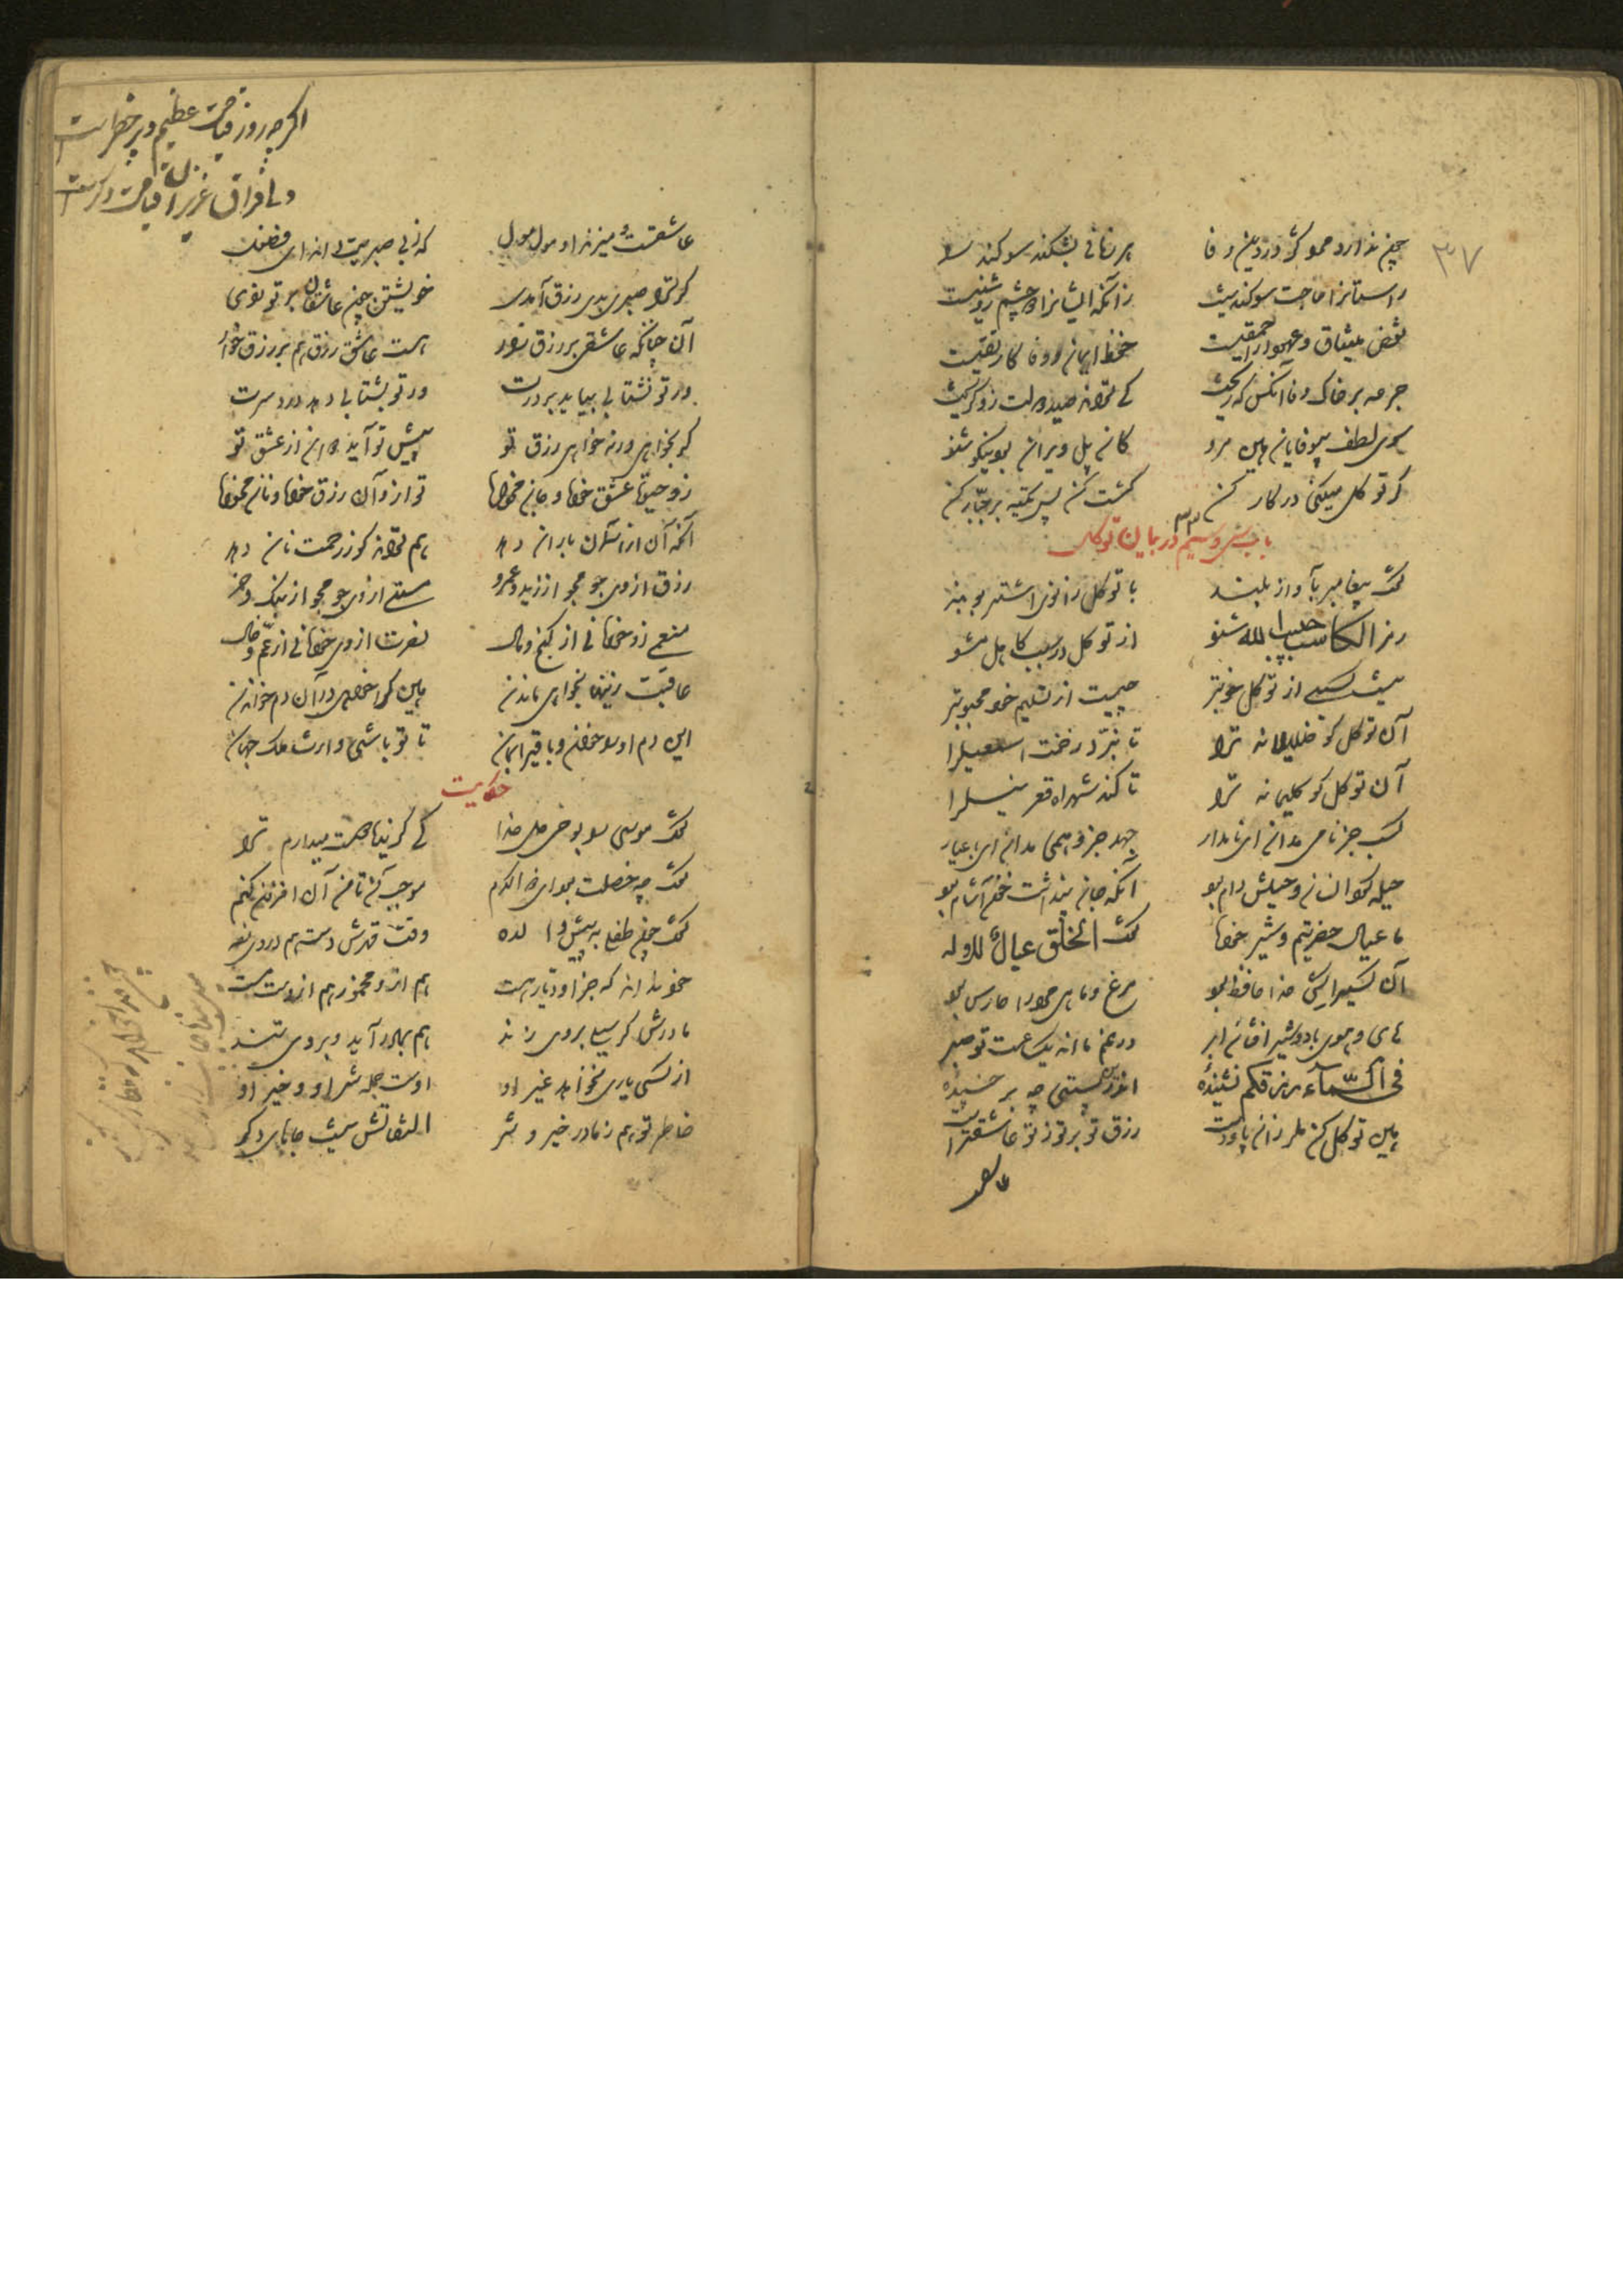 ۳۷
چون ندارد مرد کژ در دین وفا هر زمانی بشکند سوکند را
راستانرا حاجت سوکند نیست زانکه ایشانرا دو چشم روشنیست
نقض میثاق و عهود از احمقیست حفظ ایمان و وفا کار تقیست
جرعه بر خاک وفا آنکس که ریخت کی تواند صید دولت زو کریخت
سوی لطف بیوفایان هین مرو کان پل ویران بود نیکو شنو
کر توکل میکنی در کار کن کشت کن پس تکیه بر جبار کن
باب سی و سیم در بیان توکل ۳۳
کفت پیغامبر بآواز بلند با توکل زانوی اشتر ببند
رمز الکاسب حبیب الله شنو از توکل در سبب کاهل مشو
نیست کسبی از توکل خوبتر چیست از تسلیم خود محبوبتر
آن توکل کو خلیلانه ترا تا نبرد درخت اسمعیلرا
آن توکل کو کلیمانه ترا تا کند شهراه قعر نیلرا
کسب جز نامی مدان ای نامدار جهد جز وهمی مدان ای عیار
حیله کرد انسان و حیلش دام بود آنکه جان پنداشت خون آشام بود
ما عیال حضرتیم و شیر خواه کفت الخلق عیال للاله
مرغ و ماهی مر ورا حارس بود
فی السماء رزقکم نشنیدهٔ اندرین پستی چه بر چسبیدهٔ
هین توکل کن ملرزان پا و دست رزق تو بر تو ز تو عاشقترست
عاشق
اکرچه روز قیامت عظیم و پر خطر است
ولی فراق عزیزان قیامت دکر است
عاشقست و میزند او مول مول که ز بی صبریت داند ای فضول
کر ترا صبری بدی رزق آمدی خویشتن چون عاشقان بر تو زدی
آن چنانکه عاشقی بر رزق زار هست عاشق رزق هم بر رزق خوار
ور تو نشتابی بیاید بر درت ور تو بشتابی دهد درد سرت
کر بخواهی ورنه خواهی رزق تو پیش تو آید دوان از عشق تو
زو حیوة عشق خواه و جان مخواه تو ازو آن رزق خواه و نان مخواه
آنکه آن از آسمان باران دهد هم تواند کو ز رحمت نان دهد
رزق از وی جو مجو از زید و عمرو مستی از وی جو مجو از بنک و خمر
منعمی زو خواه نی از کنج و مال نصرت از وی خواه نی از عم و خال
عاقبت زینها بخواهی ماندن هین کرا خواهی در آن دم خواندن
این دم او را خوان و باقی را بمان تا تو باشی وارث ملک جهان
حکایت
کفت موسی را بوحی دل خدا کی کزیده دوست میدارم ترا
کفت چه خصلت بود ای ذو الکرم موجب آن تا من آن افزون کنم
کفت چون طفلی به پیش والده وقت قهرش دست هم در وی زده
خود نداند که جز او دیار هست هم ازو مخمور هم از اوست مست
مادرش کر سیلی بر وی زند هم بمادر آید و بر وی تند
از کسی یاری نخواهد غیر او اوست جمله شر او و خیر او
خاطر تو هم ز ما در خیر و شر التفاتش نیست جاهای دکر